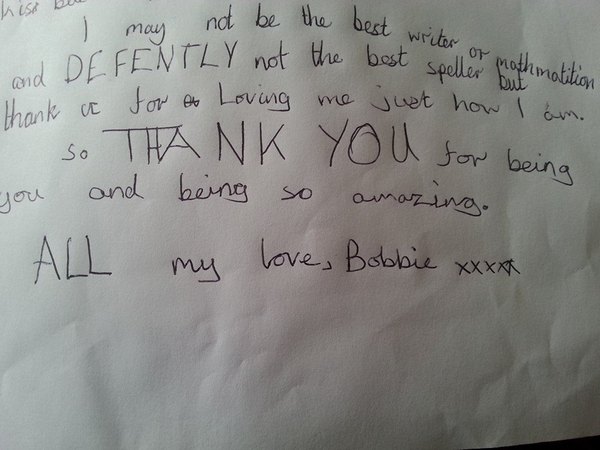 I may not be the best writer or mathmatition
and DEFENTLY not the best speller but
thank for Loving me just how I am.
so THANK YOU for being
you and being so amazing.
ALL my love, Bobbie xxxxx